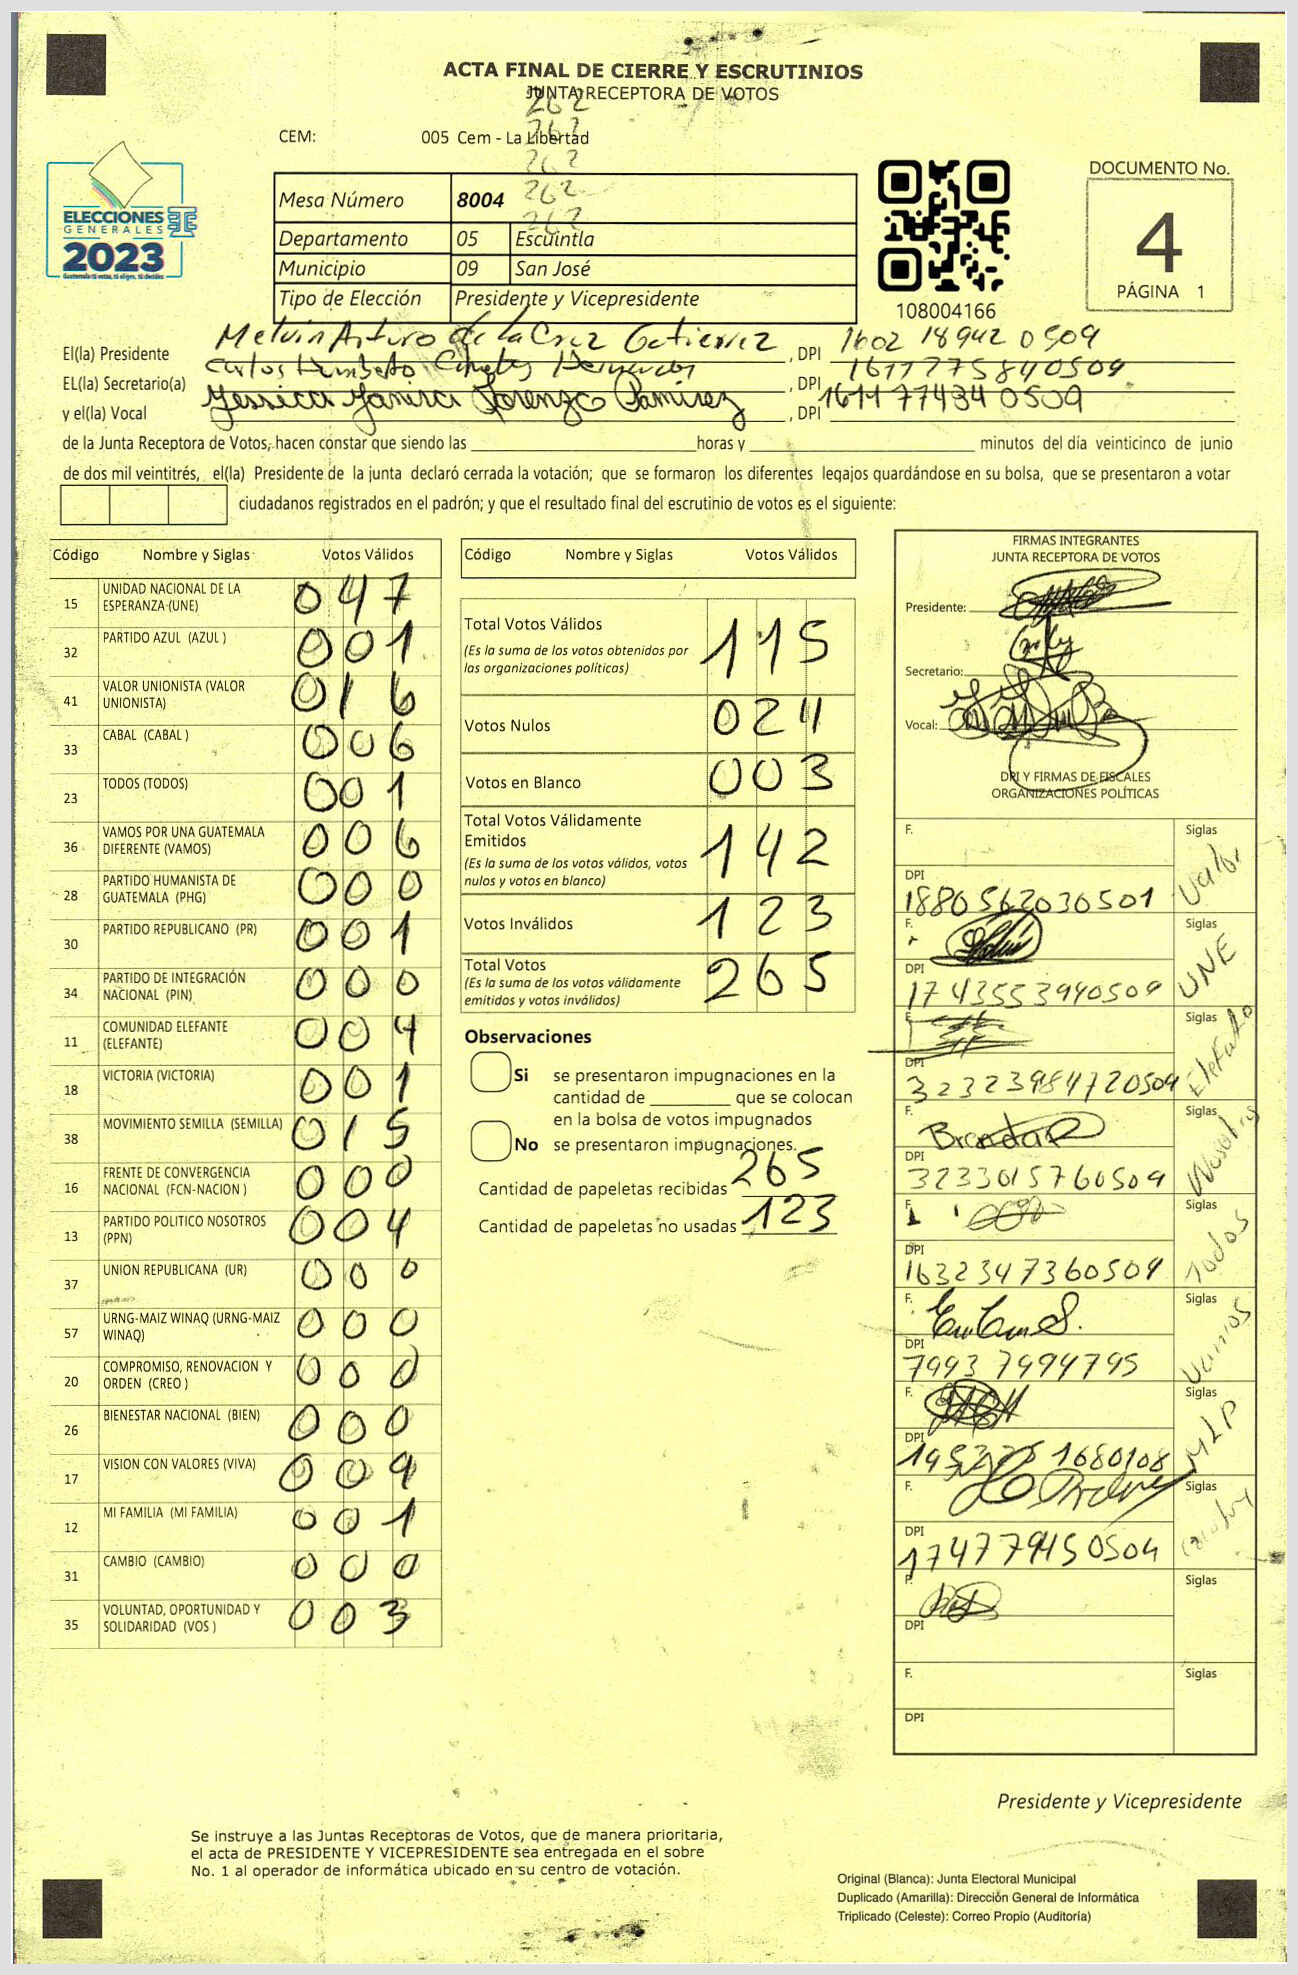 ACTA FINAL DE CIERRE Y ESCRUTINIOS
JUNTA RECEPTORA DE VOTOS
262
262
262
262
262
CEM: 005 Cem - La Libertad
ELECCIONES
GENERALES
2023
Guatemala: tú votas, tú eliges, tú decides
Mesa Número 8004
Departamento 05 Escuintla
Municipio 09 San José
Tipo de Elección Presidente y Vicepresidente
108004166
DOCUMENTO No.
4
PÁGINA 1
El(la) Presidente Melvin Arturo de la Cruz Gutierrez, DPI 1602 18942 0509
EL(la) Secretario(a) Carlos Humberto, DPI 1611775840509
y el(la) Vocal Yessica Lorenzo Ramirez, DPI 1611774340509
de la Junta Receptora de Votos, hacen constar que siendo las horas y minutos del día veinticinco de junio
de dos mil veintitrés, el(la) Presidente de la junta declaró cerrada la votación; que se formaron los diferentes legajos quardándose en su bolsa, que se presentaron a votar
ciudadanos registrados en el padrón; y que el resultado final del escrutinio de votos es el siguiente:
Código Nombre y Siglas Votos Válidos
15 UNIDAD NACIONAL DE LA ESPERANZA (UNE) 047
32 PARTIDO AZUL (AZUL ) 001
41 VALOR UNIONISTA (VALOR UNIONISTA) 016
33 CABAL (CABAL ) 006
23 TODOS (TODOS) 001
36 VAMOS POR UNA GUATEMALA DIFERENTE (VAMOS) 006
28 PARTIDO HUMANISTA DE GUATEMALA (PHG) 000
30 PARTIDO REPUBLICANO (PR) 001
34 PARTIDO DE INTEGRACIÓN NACIONAL (PIN) 000
11 COMUNIDAD ELEFANTE (ELEFANTE) 004
18 VICTORIA (VICTORIA) 001
38 MOVIMIENTO SEMILLA (SEMILLA) 015
16 FRENTE DE CONVERGENCIA NACIONAL (FCN-NACION ) 000
13 PARTIDO POLITICO NOSOTROS (PPN) 004
37 UNION REPUBLICANA (UR) 000
57 URNG-MAIZ WINAQ (URNG-MAIZ WINAQ) 000
20 COMPROMISO, RENOVACION Y ORDEN (CREO ) 000
26 BIENESTAR NACIONAL (BIEN) 000
17 VISION CON VALORES (VIVA) 009
12 MI FAMILIA (MI FAMILIA) 001
31 CAMBIO (CAMBIO) 000
35 VOLUNTAD, OPORTUNIDAD Y SOLIDARIDAD (VOS ) 003
Código Nombre y Siglas Votos Válidos
Total Votos Válidos 115
(Es la suma de los votos obtenidos por
las organizaciones políticas)
Votos Nulos 024
Votos en Blanco 003
Total Votos Válidamente
Emitidos 142
(Es la suma de los votos válidos, votos
nulos y votos en blanco)
Votos Inválidos 123
Total Votos 265
(Es la suma de los votos válidamente
emitidos y votos inválidos)
Observaciones
Si se presentaron impugnaciones en la
cantidad de que se colocan
en la bolsa de votos impugnados
No se presentaron impugnaciones.
Cantidad de papeletas recibidas 265
Cantidad de papeletas no usadas 123
FIRMAS INTEGRANTES
JUNTA RECEPTORA DE VOTOS
Presidente:
Secretario:
Vocal:
DPI Y FIRMAS DE FISCALES
ORGANIZACIONES POLÍTICAS
F. Siglas Valor
DPI 1880562030501
F. Siglas UNE
DPI 1743553940509
F. Siglas Elefante
DPI 32323984720509
F. Siglas Nosotros
DPI 3233015760509
F. Siglas Todos
DPI 1632347360509
F. Siglas Vamos
DPI 79937994795
F. Siglas MLP
DPI 1680108
F. Siglas
DPI 0509
F. Siglas
DPI
F. Siglas
DPI
Presidente y Vicepresidente
Se instruye a las Juntas Receptoras de Votos, que de manera prioritaria,
el acta de PRESIDENTE Y VICEPRESIDENTE sea entregada en el sobre
No. 1 al operador de informática ubicado en su centro de votación.
Original (Blanca): Junta Electoral Municipal
Duplicado (Amarilla): Dirección General de Informática
Triplicado (Celeste): Correo Propio (Auditoría)